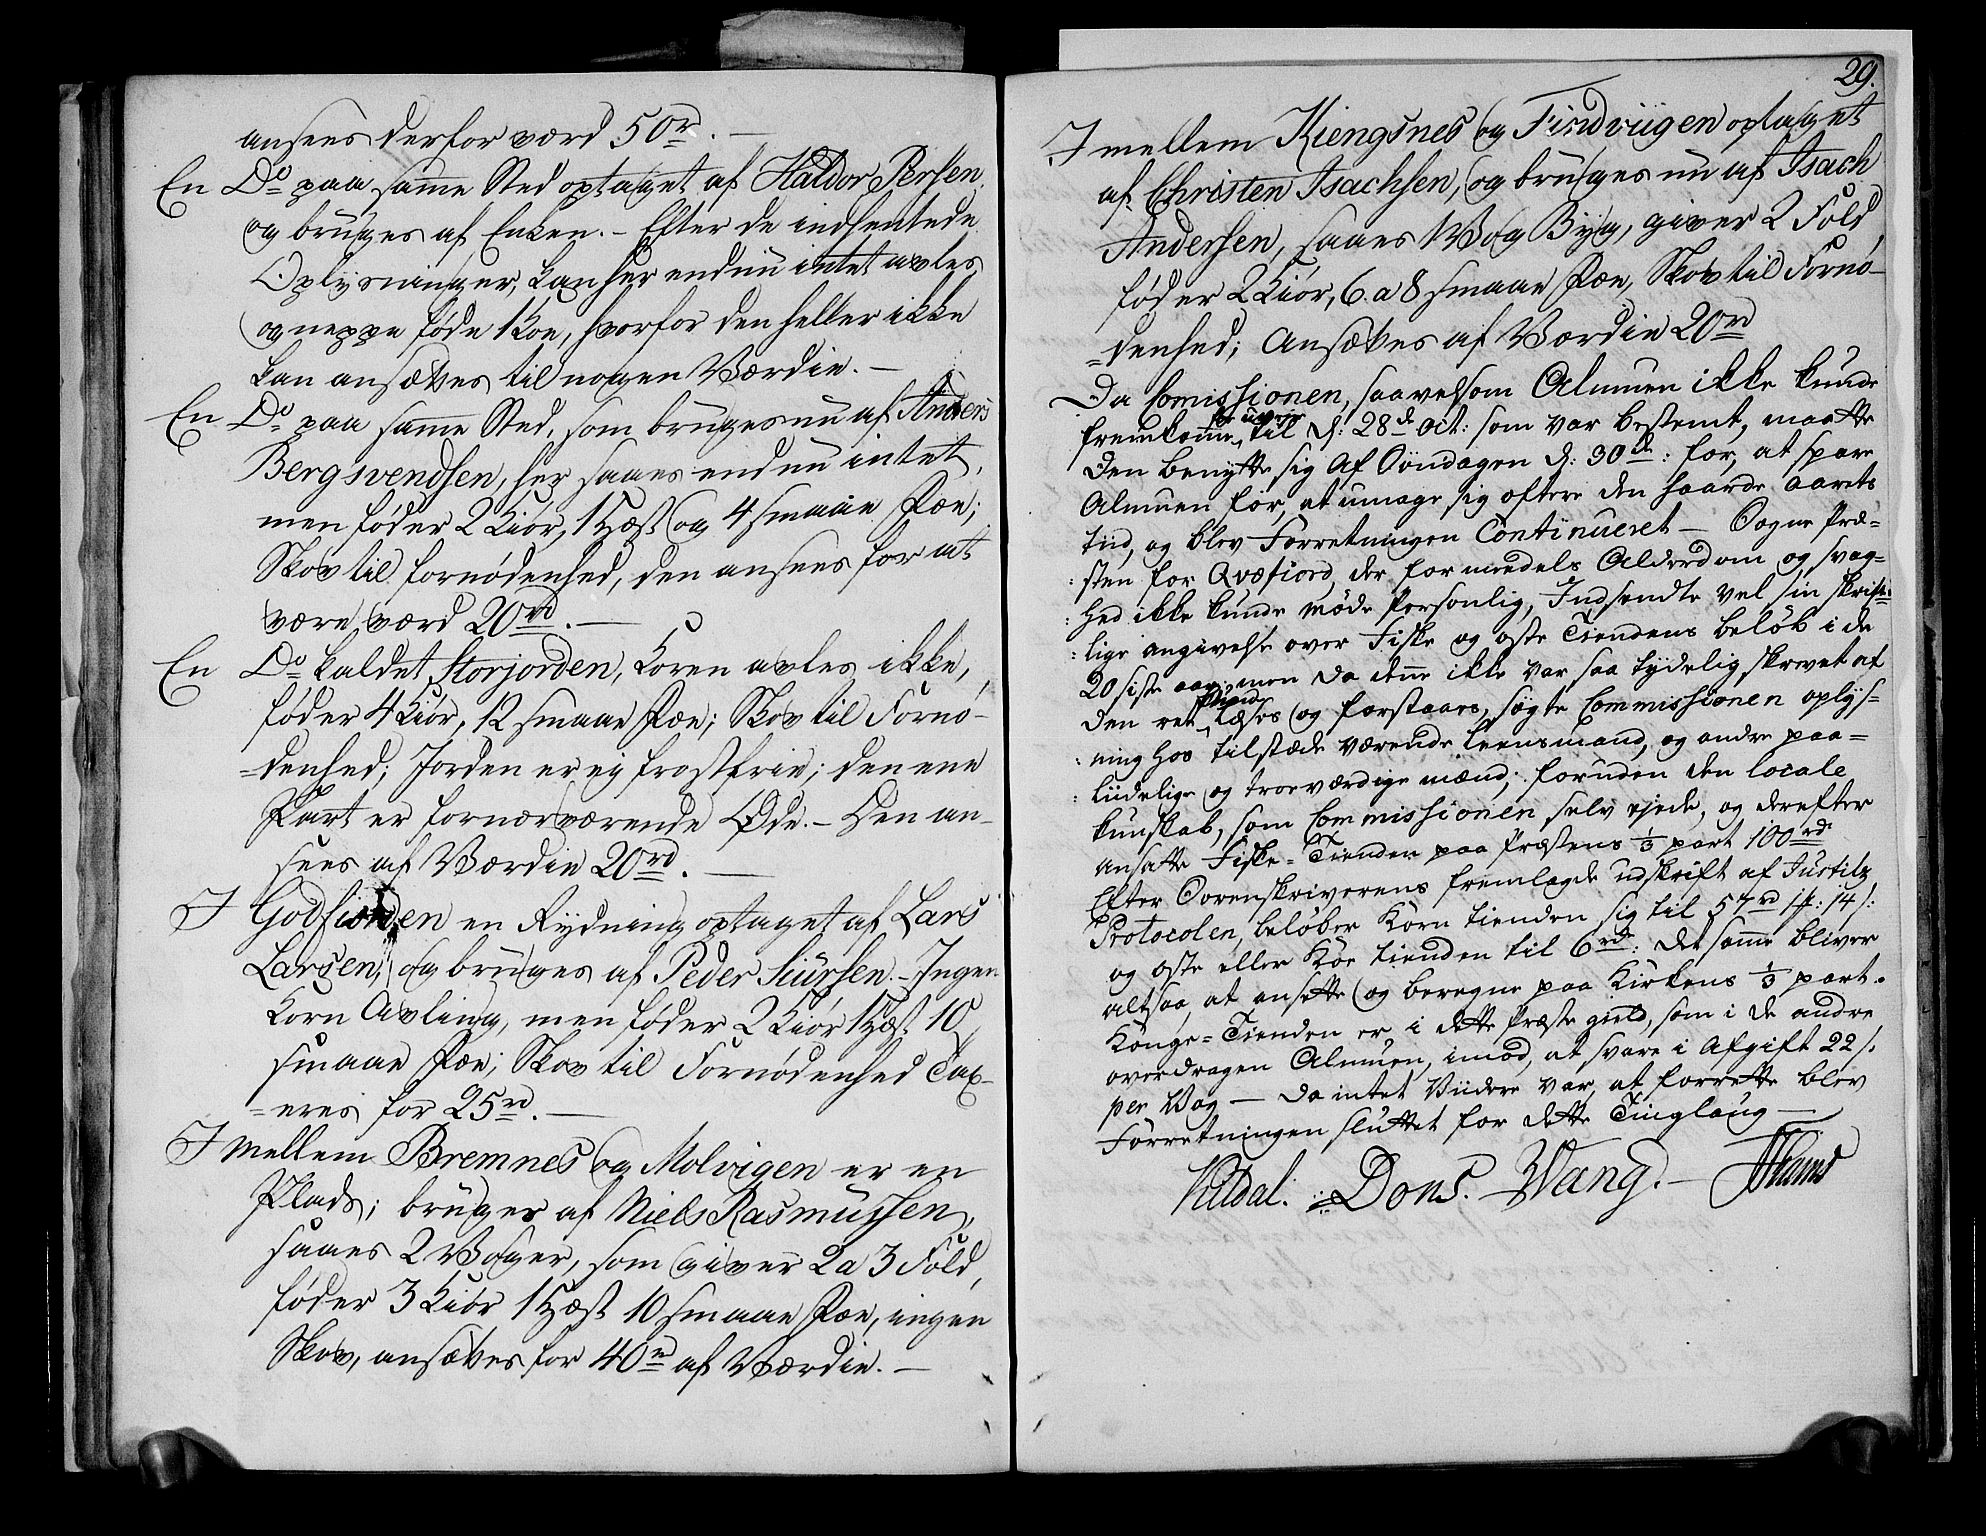 ansees derfor værd 50rd. —
En Do paa samme Sted optaget af Haldor Persen
og bruges af Enken. – Efter de indhentede
Oplysninger, kan her endnu intet avles
og neppe føde 1 Koe, hvorfor den heller ikke
kan ansættes til nogen Værdie. —
En Do paa samme Sted, som bruges nu af Anders
Bergsvendsen, her saaes endnu intet,
men føder 2 Kiør, 1 Hæst og 4 smaae Fæe;
Skov til fornødenhed, den ansees for at
være værd 20rd. —
En Do kaldet Storjorden, Koren avles ikke,
føder 4 Kiør, 12 smaae Fæe; Skov til Fornø-
=denhed; Jorden er ej frostfrie; den ene
Part er fornærværende Øde. – Den an-
sees af Værdie 20rd. —
I Godfiorden en Rydning optaget af Lars
Larsen, og bruges af Peder Siursen. – Ingen
Korn Avling, men føder 2 Kiør 1 Hæst 10
smaae Fæe; Skov til Fornødenhed Tax-
=eres for 25rd. —
I mellem Bremnes og Molvigen er en
Plads; bruges af Niels Rasmussen,
saaes 2 Voger, som giver 2 a 3 Fold,
føder 3 Kiør 1 Hæst 10 smaae Fæe, ingen
Skov, ansættes for 40rd af Værdie. —
29.
I mellem Kiengsnes og Findviigen optaget
af Christen Isachsen, og bruges nu af Isach
Andersen, saaes 1 Vog Byg, giver 2 Fold,
føder 2 Kiør, 6 a 8 smaae Fæe, Skov til Fornø-
=denhed; Ansættes af Værdie 20rd
Da Comissionen, saavelsom Almuen ikke kunde
for uveir
fremkomme til d: 28de Oct: som var bestemt, maatte
den benytte sig af Søndagen d: 30de: for, at spare
Almuen for, at umage sig oftere den haarde aarets
tiid, og blev Forretningen Continueret — Sogne Præ=
:sten for Qvæfiord, der formedels Alderdom og svag=
:hed ikke kunde møde Personlig, Indsendte vel sin skrift=
:lige angivelse over Fiske og oste Tiendens beløb i de
20 siste aar, men da denne ikke var saa tydelig skrevet at
kunde
den ret læses og forstaaes, søgte Commissionen oplys=
:ning hos tilstæde værende Leensmand, og andre paa=
:liidelige og troeværdige mænd, foruden den locale
kundskab, som Commissionen selv ejede, og derefter
ansatte Fiske=Tienden paa Præstens 1/3 part 100rd
Efter Sorenskriverens fremlagde udskrift af Justitz
Protocolen, beløber Korn tienden sig til 57rd 1 : 14 s:
og oste eller Kòe tienden til 6rd: det samme bliver
altsaa, at ansette og beregne paa Kirkens 1/3 part.
Konge=Tienden er, i dette Præste gield, som i de andre
overdragen Almuen, imod, at svare i Afgift 22 s:
per Vog — da intet viidere var, at forrette blev
Forretningen sluttet for dette Tinglaug —
Hildal. Dons. Wang. —